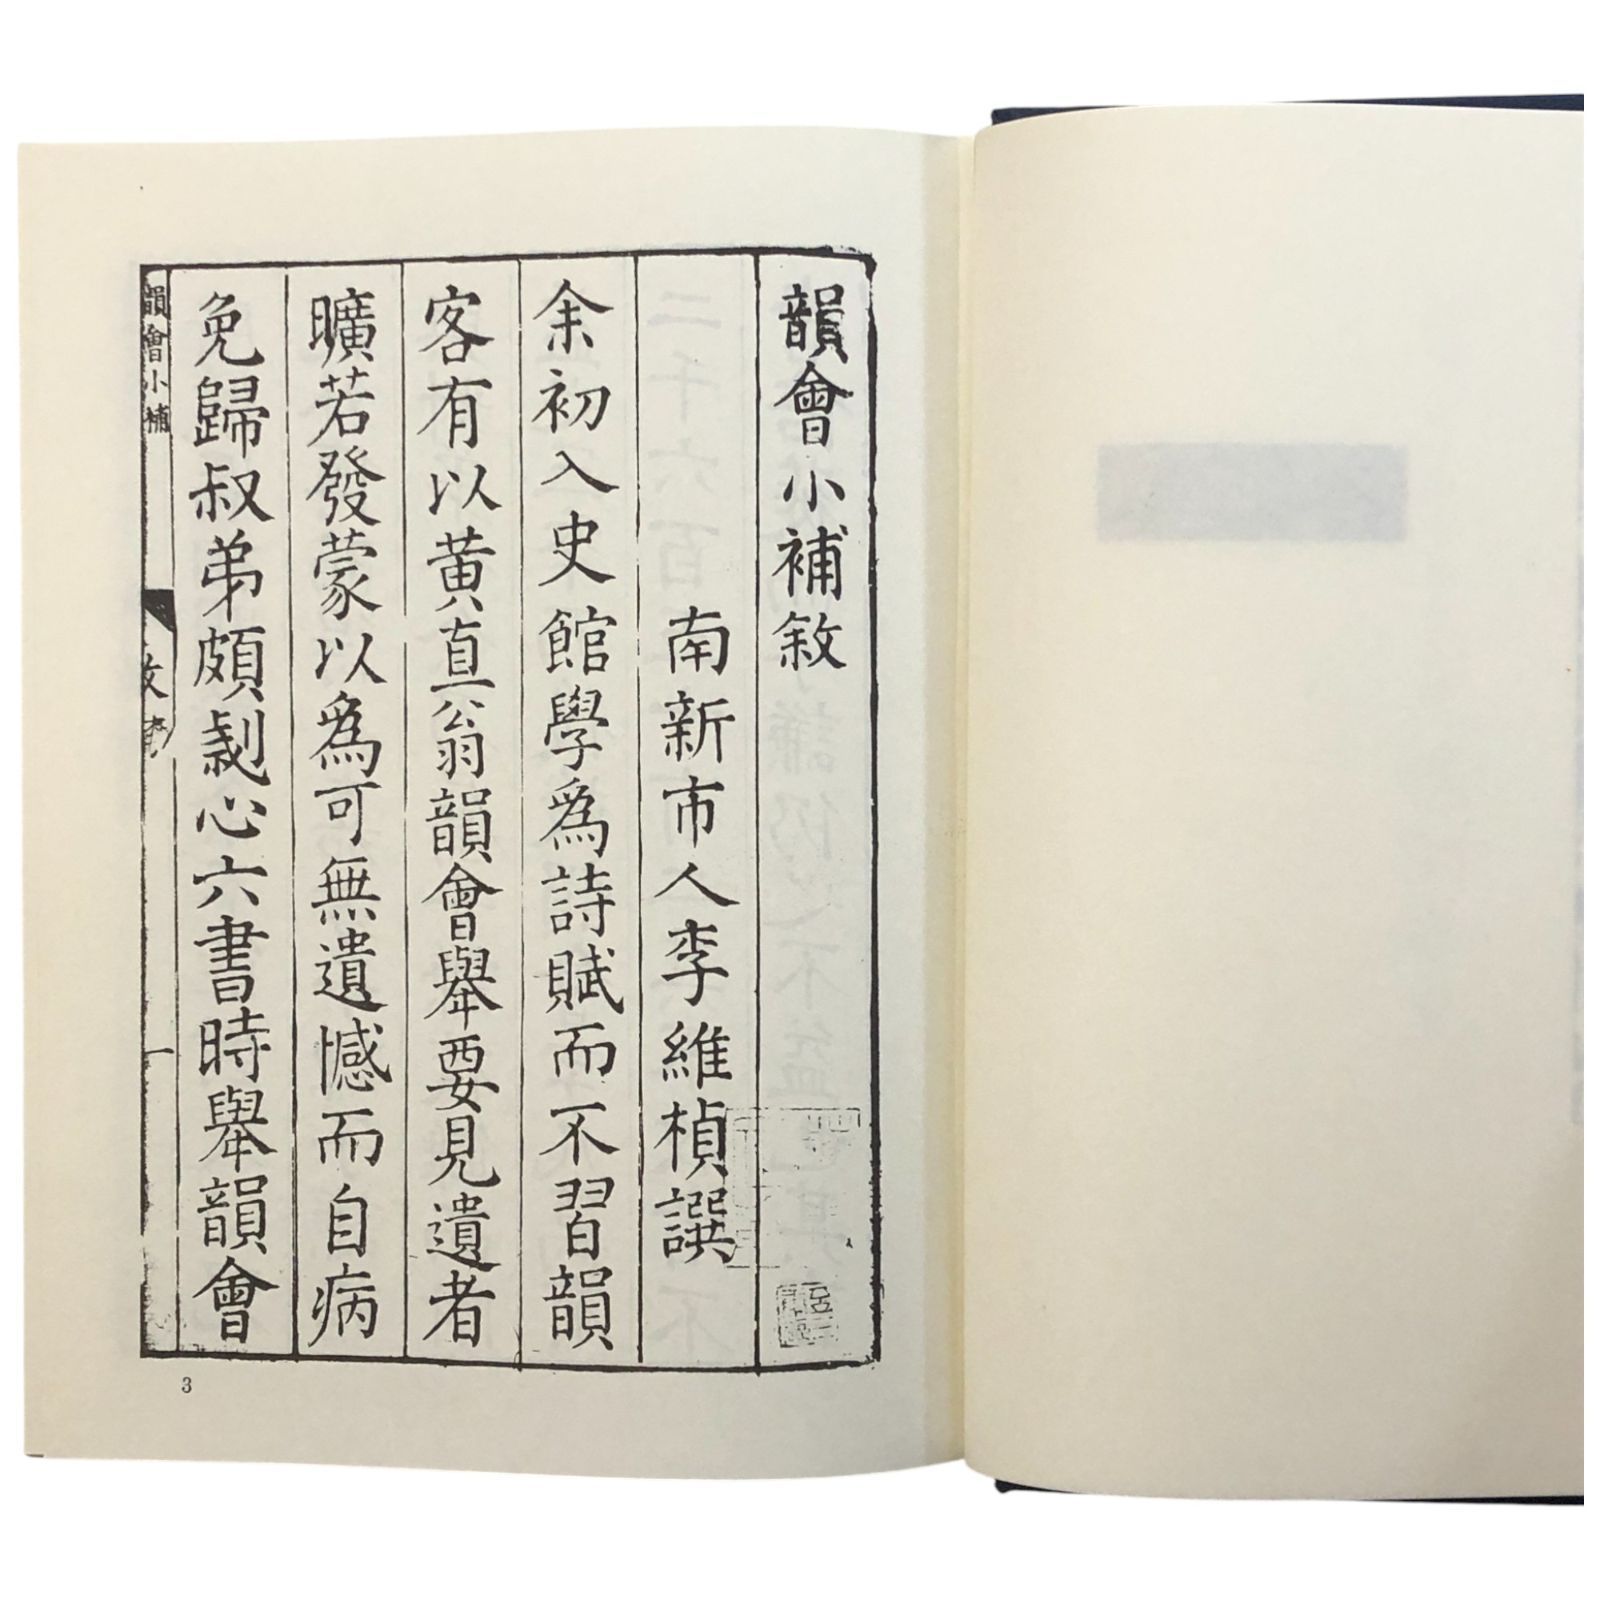 韻會小補敘
南新市人李維楨譔
余初入史館學爲詩賦而不習韻
客有以黃直翁韻會舉要見遺者
曠若發蒙以爲可無遺憾而自病
免歸叔弟頗㓣心六書時舉韻會
韻會小補
一
3